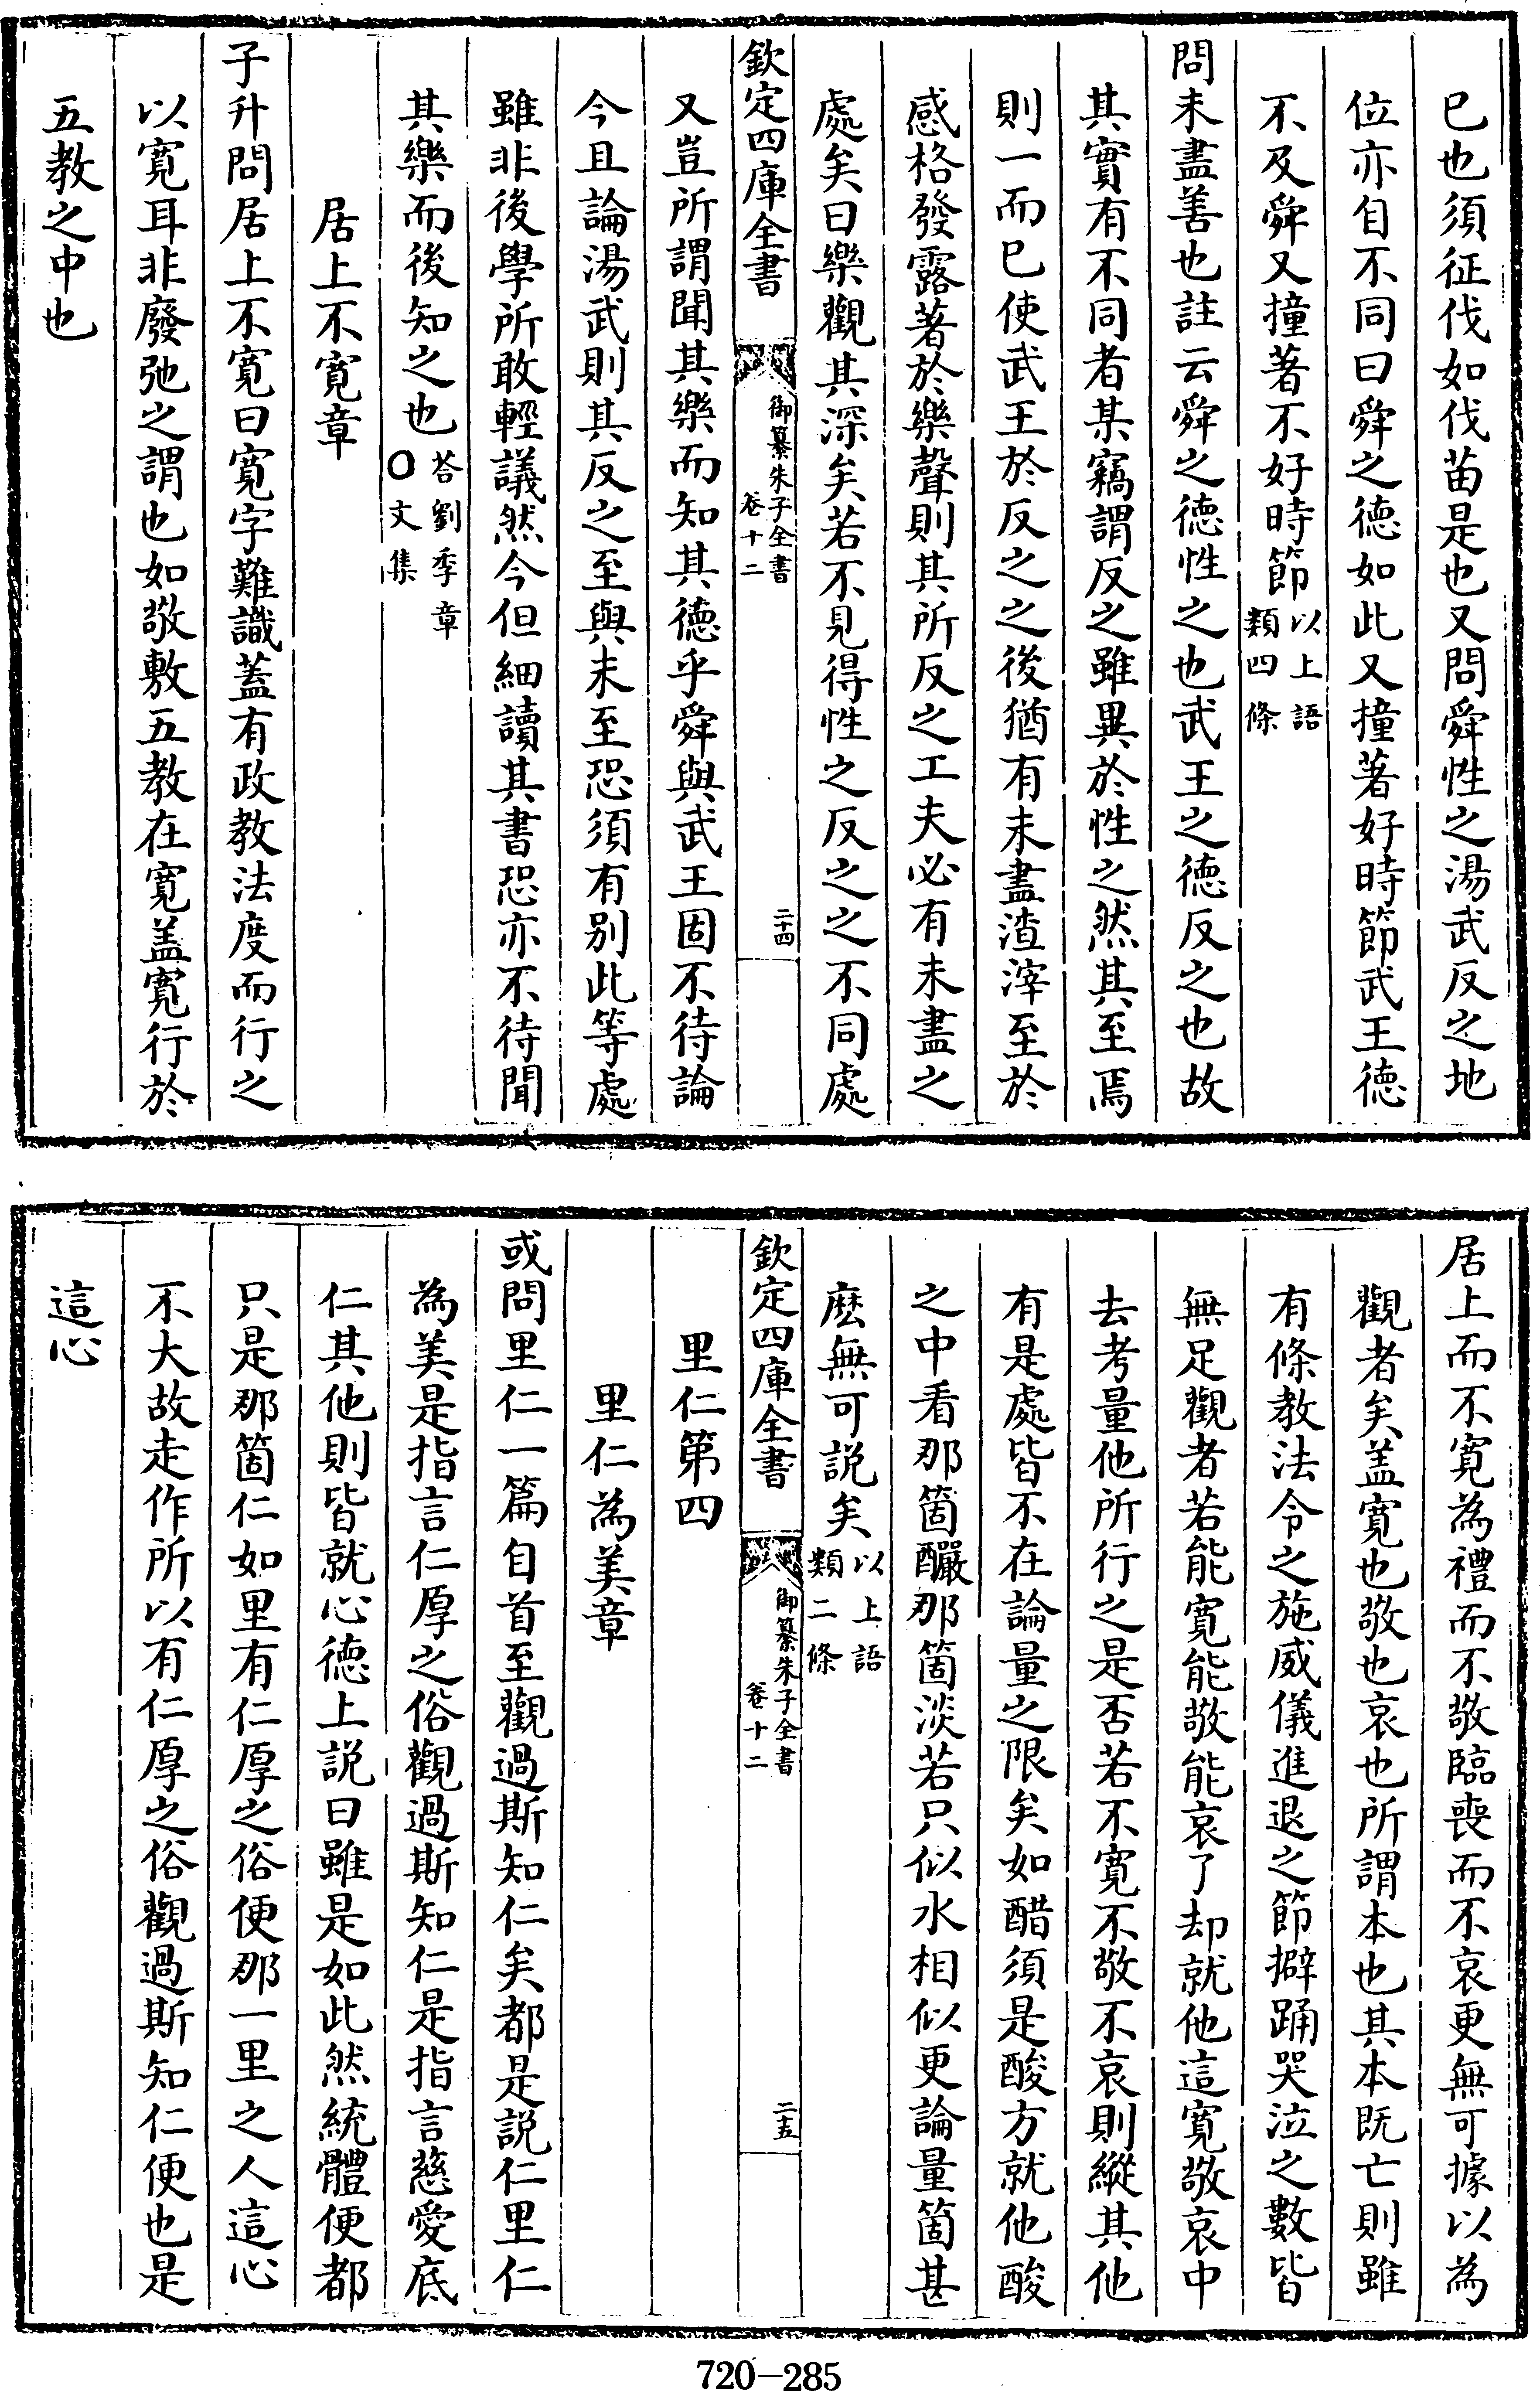 已也須征伐如伐苗是也又問舜性之湯武反之地
位亦自不同曰舜之德如此又撞著好時節武王德
不及舜又撞著不好時節以上語
類四條
問未盡善也註云舜之德性之也武王之德反之也故
其實有不同者某竊謂反之雖異於性之然其至焉
則一而已使武王於反之之後猶有未盡渣滓至於
感格發露著於樂聲則其所反之工夫必有未盡之
處矣曰樂觀其深矣若不見得性之反之之不同處
欽定四庫全書
御纂朱子全書
卷十二
二十四
又豈所謂聞其樂而知其德乎舜與武王固不待論
今且論湯武則其反之至與未至恐須有別此等處
雖非後學所敢輕議然今但細讀其書恐亦不待聞
其樂而後知之也答劉季章
○文集
居上不寬章
子升問居上不寬曰寬字難識蓋有政教法度而行之
以寬耳非廢弛之謂也如敬敷五教在寬盖寬行於
五教之中也
居上而不寬為禮而不敬臨喪而不哀更無可據以為
觀者矣盖寬也敬也哀也所謂本也其本既亡則雖
有條教法令之施威儀進退之節擗踊哭泣之數皆
無足觀者若能寬能敬能哀了却就他這寬敬哀中
去考量他所行之是否若不寬不敬不哀則縱其他
有是處皆不在論量之限矣如醋須是酸方就他酸
之中看那箇釅那箇淡若只似水相似更論量箇甚
麽無可説矣以上語
類二條
欽定四庫全書
御纂朱子全書
卷十二
二十五
里仁第四
里仁為美章
或問里仁一篇自首至觀過斯知仁矣都是説仁里仁
為美是指言仁厚之俗觀過斯知仁是指言慈愛底
仁其他則皆就心德上説曰雖是如此然統體便都
只是那箇仁如里有仁厚之俗便那一里之人這心
不大故走作所以有仁厚之俗觀過斯知仁便也是
這心
720—285